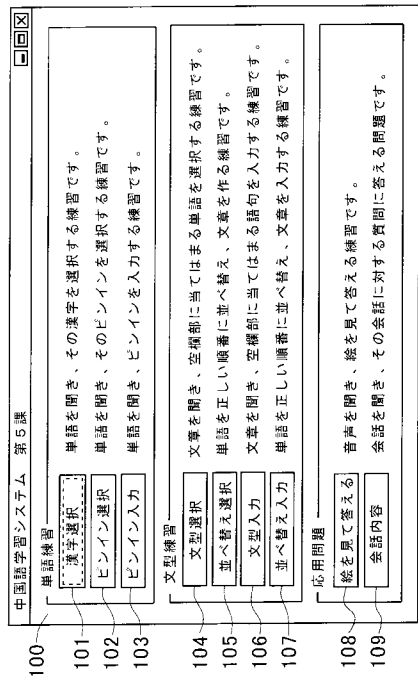 中国語学習システム 第5課
100
単語練習
101 漢字選択 単語を聞き、その漢字を選択する練習です。
102 ピンイン選択 単語を聞き、そのピンインを選択する練習です。
103 ピンイン入力 単語を聞き、ピンインを入力する練習です。
文型練習
104 文型選択 文章を聞き、空欄部に当てはまる単語を選択する練習です。
105 並べ替え選択 単語を正しい順番に並べ替え、文章を作る練習です。
106 文型入力 文章を聞き、空欄部に当てはまる語句を入力する練習です。
107 並べ替え入力 単語を正しい順番に並べ替え、文章を入力する練習です。
応用問題
108 絵を見て答える 音声を聞き、絵を見て答える練習です。
109 会話内容 会話を聞き、その会話に対する質問に答える問題です。